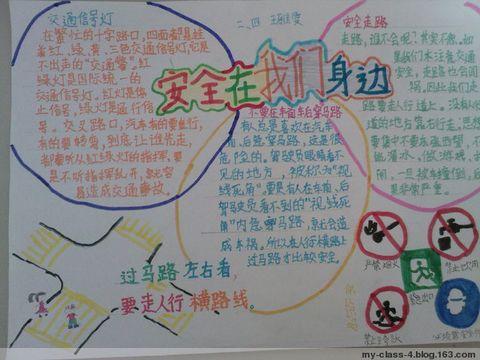 交通信号灯
在繁忙的十字路口，四面都悬挂
着红、绿、黄、三色交通信号灯，它是
不出声的“交通警”。红
绿灯是国际统一的
交通信号灯。红灯是停
止信号，绿灯是通行信
号。交叉路口，汽车有的要直行，
有的要转弯，到底让谁先走，
都要听从红绿灯的指挥，要
是不听指挥乱开，就容
易造成交通事故。
二、四
安全在我们身边
不要在车前车后穿马路
有人总喜欢在汽车
前、后横穿马路，这是很
危险的。驾驶员眼睛看不
见的地方，被称为“视
线死角”。要是有人在车前、后
驾驶员看不到的“视线死
角”内急穿马路，就会造
成车祸。所以走人行横道上
过马路才比较安全。
安全走路
走路，谁不会呢？其实不然。如
果我们不注意交通
安全，走路也会闯
祸。因此我们走
路要走人行道上。没有人行
道的地方靠右行走，思想
要集中不要东张西望，不
做游戏
一旦被车撞倒，后
果非常严重。
过马路左右看，
要走人行横路线。
严禁烟火
禁止饮用
my-class-4.blog.163.com